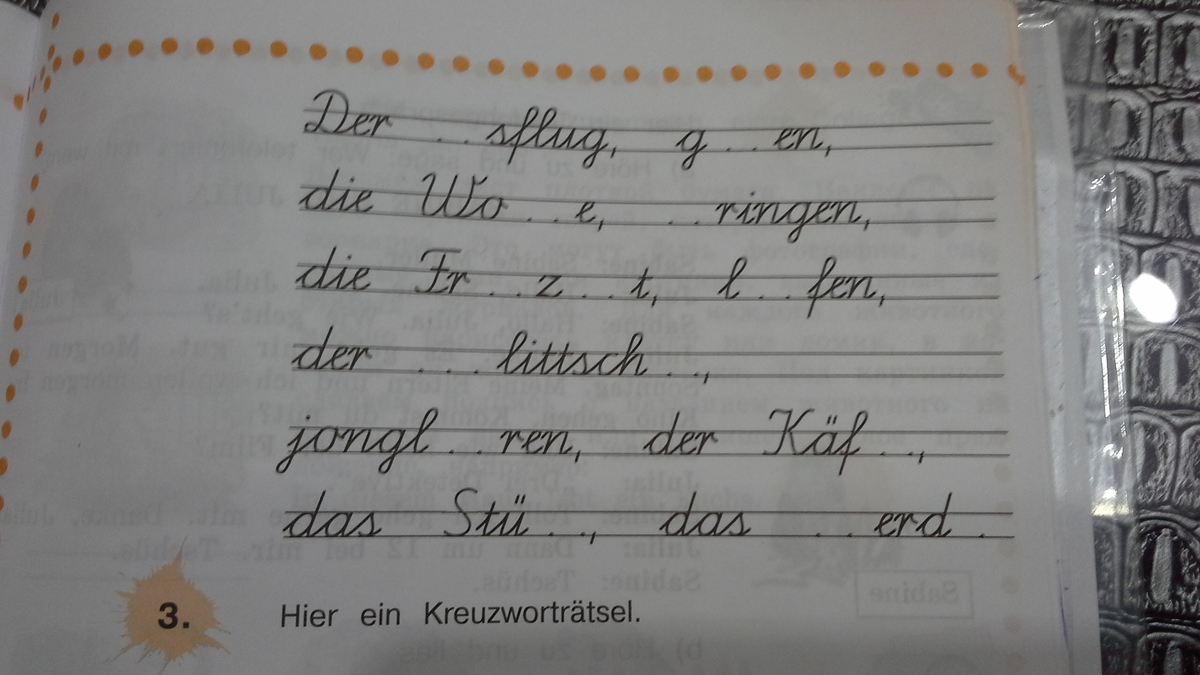 Der . . sflug, g . . en,
die Wo . . e, . . ringen,
die Fr . . z . . t, l . . fen,
der . . . littsch . .,
jongl . . ren, der Käf . .,
das Stü . ., das . . erd .
3. Hier ein Kreuzworträtsel.